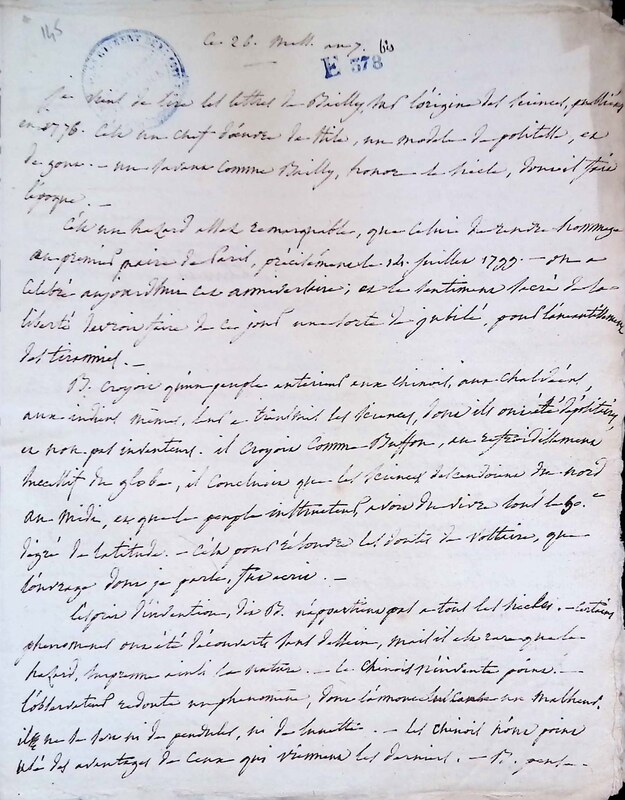 145
ce 26. Mess. an 7.
60
E 378
Je viens de lire les lettres de Bailly, sur l'origine des sciences, publiées
en 1776. C'est un chef d'œuvre de stile, un modele de politesse, et
de gout. - un savant comme Bailly, honore le siecle, dont il fait
l'époque. -
C'est un hazard assez remarquable, que celui de rendre hommage
au premier maire de Paris, précisément le 14 juillet 1799. - on a
celebré aujourdhui cet anniversaire; et le sentiment sacré de la
liberté devroit faire de ce jour une sorte de jubilé, pour l'aneantissement
des tirannies. -
B. croyoit qu'un peuple anterieur aux chinois, aux chaldéens,
aux indiens mêmes, leur a transmis les sciences, dont ils ont été dépositaires
et non pas inventeurs. il croyoit comme Buffon, au refroidissement
successif du globe, il concluoit que les sciences descendoient du nord
au midi, et que le peuple instituteur, avoit du vivre sous le 50.e
dégré de latitude. - C'est pour résoudre les doutes de Voltaire, que
l'ouvrage dont je parle, fut ecrit. -
L'esprit d'invention, dit B. n'appartient pas a tous les siecles. - Certains
phenomenes ont été découverts sans dessein, mais il est rare que le
hazard, surprenne ainsi la nature. - Le chinois n'invente point. -
L'observateur redoute un phenomene, dont l'annonce un malheur.
il ne se sert ni de pendules, ni de lunettes. - Les chinois n'ont point
usé des avantages de ceux qui viennent les derniers. - B. pense -